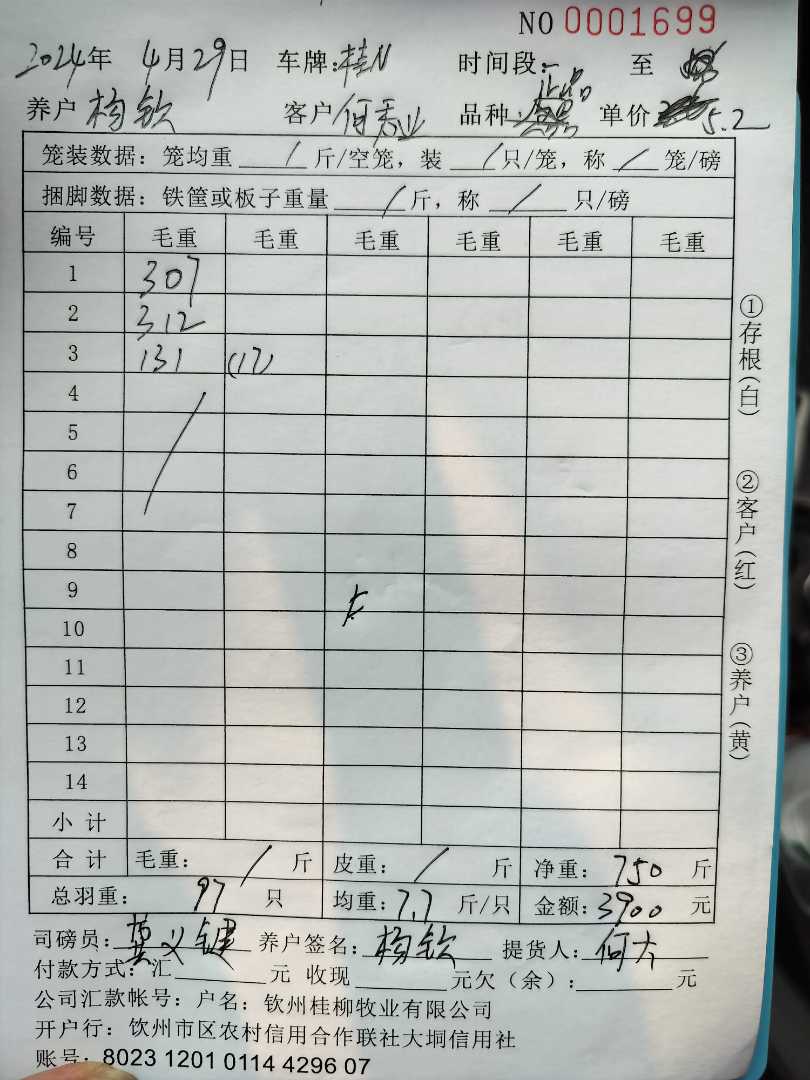 NO 0001699
2024年 4月29日 车牌:桂N 时间段: 至
养户 杨钦 客户 何秀业 品种: 正品 单价 5.2
笼装数据: 笼均重 / 斤/空笼, 装 / 只/笼, 称 / 笼/磅
捆脚数据: 铁筐或板子重量 / 斤, 称 / 只/磅
编号 毛重 毛重 毛重 毛重 毛重 毛重
1 307
2 312
3 131 (17)
4
5
6
7
8
9
10
11
12
13
14
小 计
合 计 毛重: / 斤 皮重: / 斤 净重: 750 斤
总羽重: 97 只 均重: 7.7 斤/只 金额: 3900 元
司磅员: 莫义键 养户签名: 杨钦 提货人: 何大
付款方式: 汇 元 收现 元欠(余): 元
公司汇款帐号: 户名: 钦州桂柳牧业有限公司
开户行: 钦州市区农村信用合作联社大垌信用社
账号: 8023 1201 0114 4296 07
①存根(白)
②客户(红)
③养户(黄)